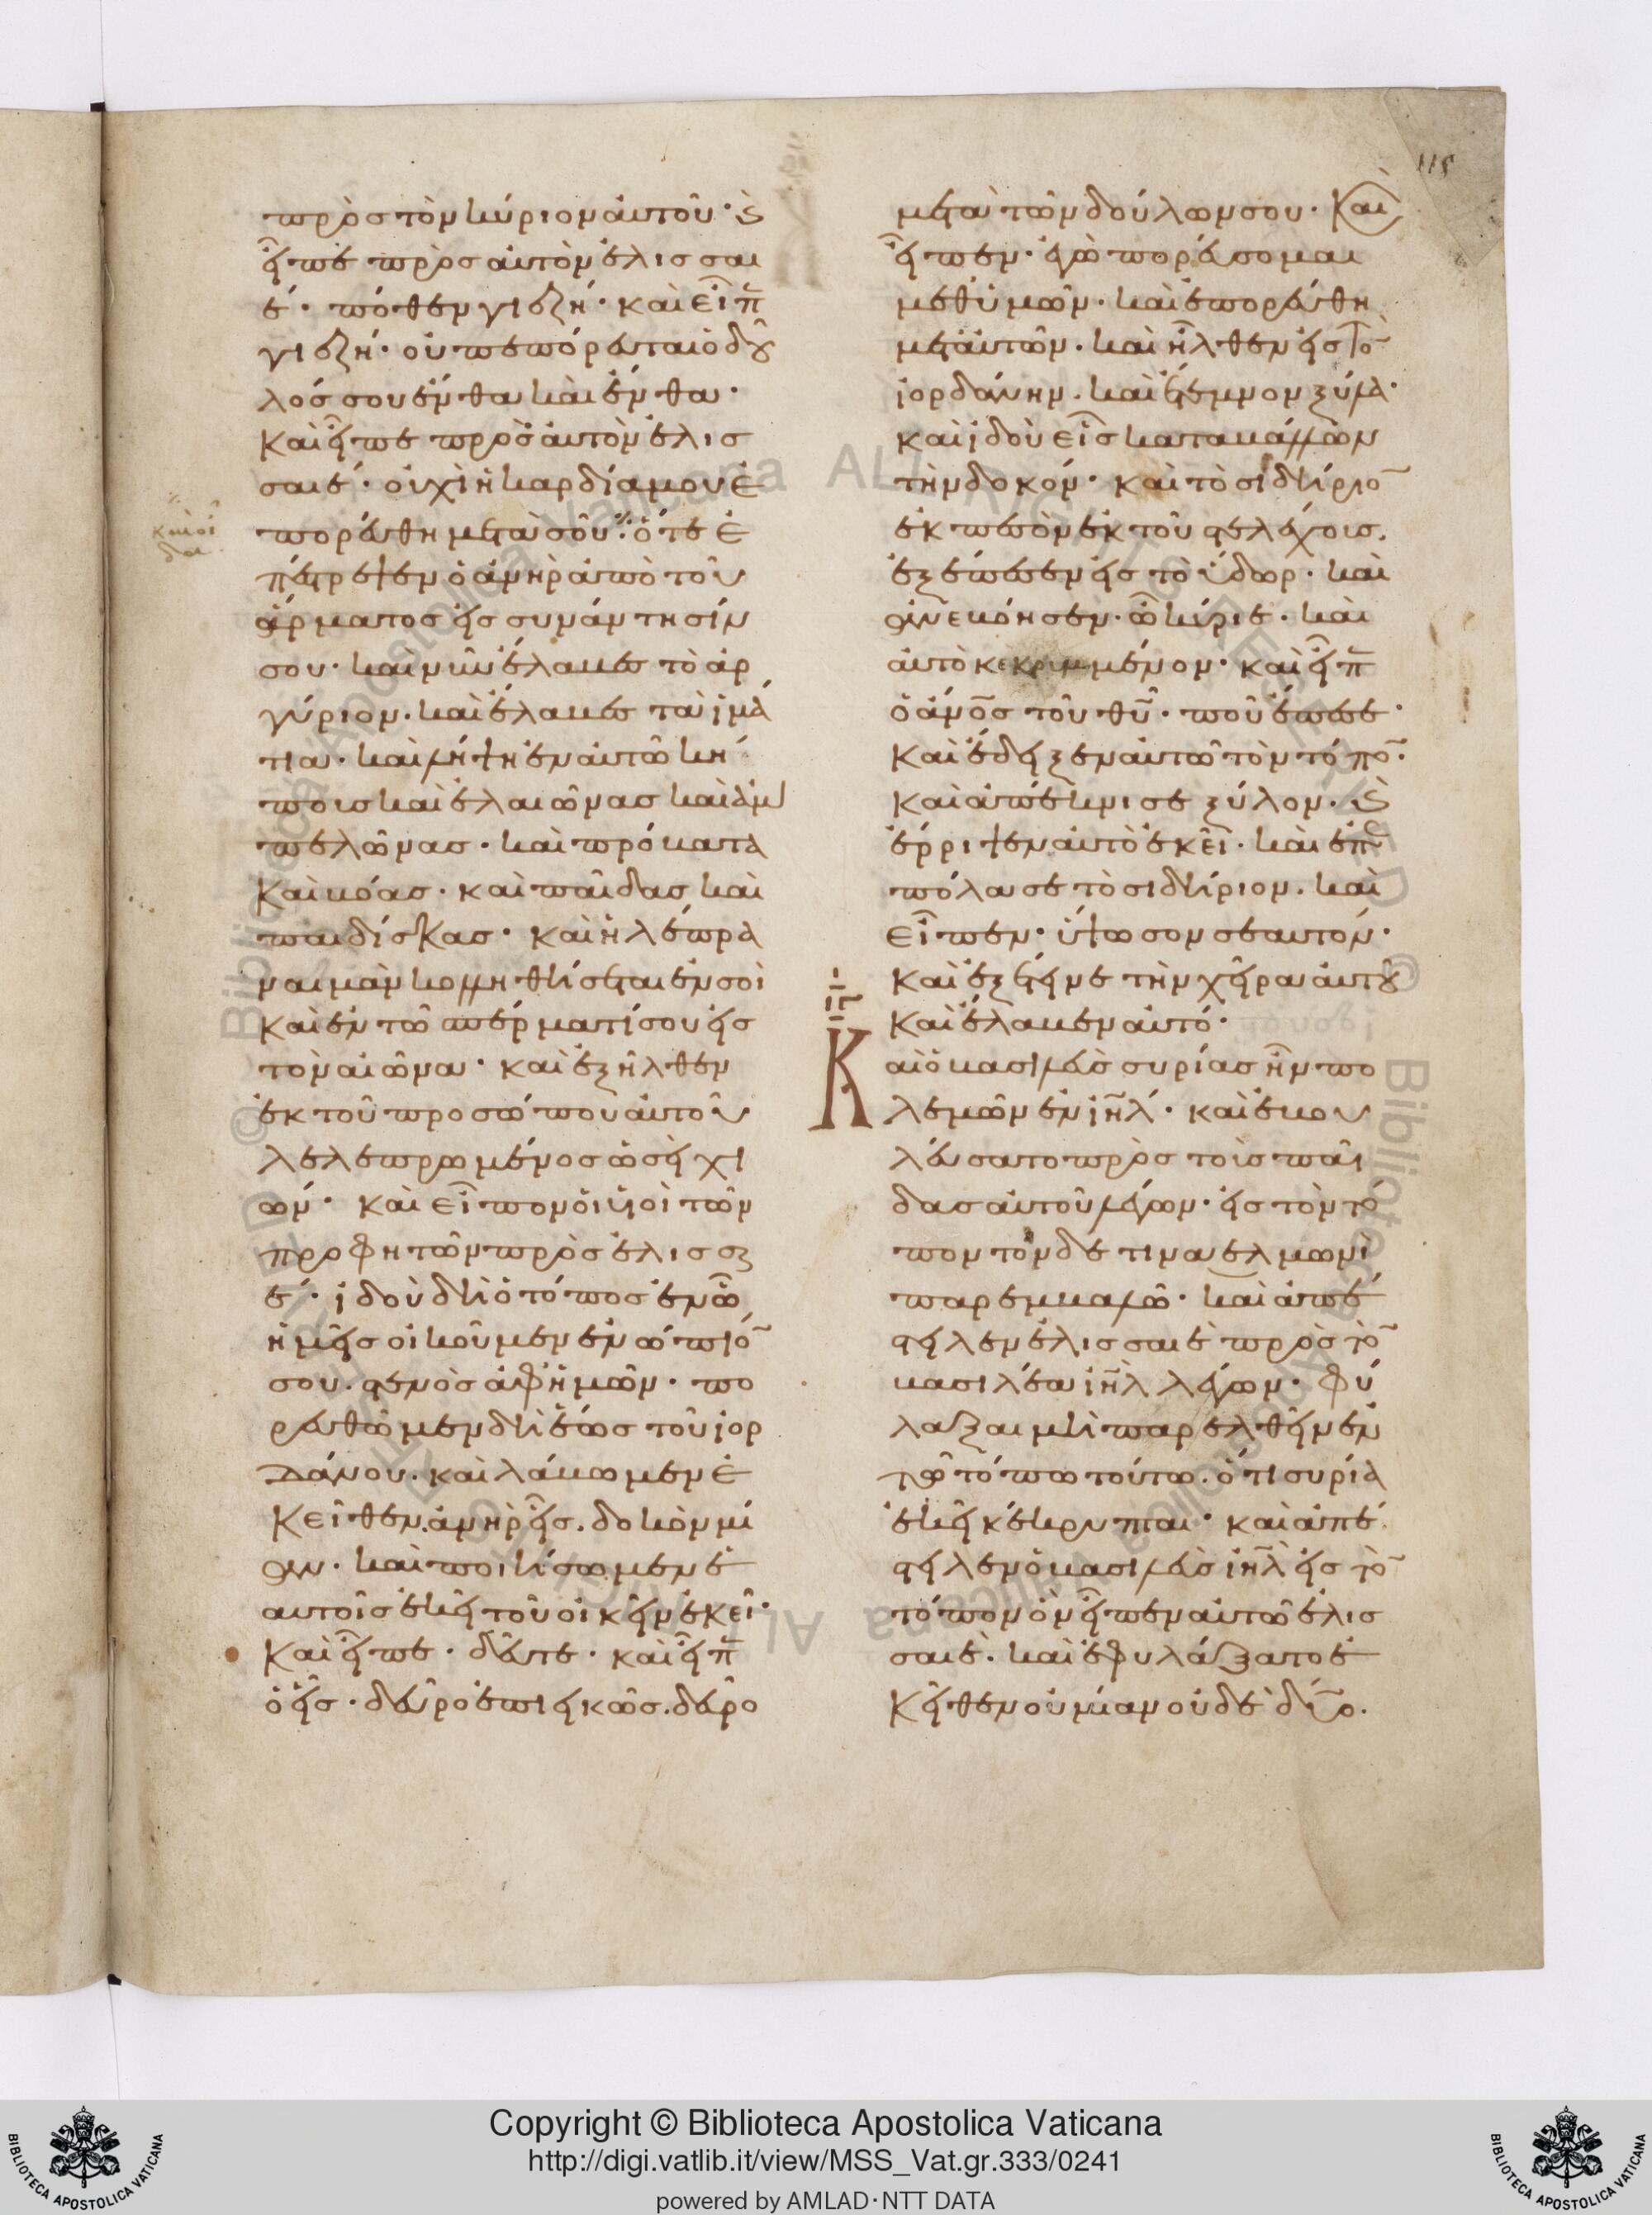 πρὸς τὸν κύριον αὐτοῦ· ϗ
εἶπε πρὸς αὐτὸν ἐλισσαι
έ· πόθεν γιεζή· καὶ εἶπ
γιεζή· οὐ πεπόρευται ὁ δοῦ
λός σου ἔνθα καὶ ἔνθα·
Καὶ εἶπε πρὸς αὐτὸν ἐλισ
σαιέ· οὐχὶ ἡ καρδία μου ἐ
καὶ οἶ
δα
πορεύθη μετὰ σοῦ· ὅτε ἐ
πέτρεψεν ὁ ἀνὴρ ἀπὸ τοῦ
ἅρματος εἰς συνάντησίν
σου· καὶ νῦν ἔλαβες τὸ ἀρ
γύριον· καὶ ἔλαβες τὰ ἱμά
τια· καὶ λήψη ἐν αὐτῶ κή
πους καὶ ἐλαιῶνας καὶ ἀμ
πελῶνας· καὶ πρόβατα
Καὶ βόας· καὶ παῖδας καὶ
παιδίσκας· καὶ ἡ λέπρα
ναιμὰν κολληθήσεται ἐν σοὶ
Καὶ ἐν τῶ σπέρματί σου εἰς
τὸν αἰῶνα· καὶ ἐξῆλθεν
ἐκ τοῦ προσώπου αὐτοῦ
λελεπρωμένος ὡσεὶ χι
ών· καὶ εἶπον οἱ υἱοὶ τῶν
προφητῶν πρὸς ἐλισσαι
έ· ἰδοὺ δὴ ὁ τόπος ἐν ᾧ
ἡμεῖς οἰκοῦμεν ἐνώπιό
σου· στενὸς ἀφ' ἡμῶν· πο
ρευθῶμεν δὴ ἕως τοῦ ἰορ
δάνου· καὶ λάβωμεν ἐ
Κεῖθεν ἀνὴρ εἷς· δοκὸν μί
αν· καὶ ποιήσωμεν ἑ
αυτοῖς ἐκεῖ τοῦ οἰκεῖν ἐκεῖ·
Καὶ εἶπε· δεῦτε· καὶ εἶπ
ὁ εἷς· δεῦρο ἐπιεικῶς· δεῦρο
μετὰ τῶν δούλων σου· Καὶ
εἶπεν· ἐγὼ πορεύσομαι
μεθ' ὑμῶν· καὶ ἐπορεύθη
μετ' αὐτῶν· καὶ ἦλθεν εἰς τὸ
ἰορδάνην· καὶ ἔτεμνον ξύλα·
καὶ ἰδοὺ εἷς καταβάλλων
τὴν δοκόν· καὶ τὸ σιδήριο
ἐκπεσὸν ἐκ τοῦ στελέχους·
ἐξέπεσεν εἰς τὸ ὕδωρ· καὶ
ἀνεβόησεν· ὦ κύριε· καὶ
αὐτὸ κεκρυμμένον· καὶ εἶπ
ὁ ἄνος τοῦ θυ· ποῦ ἔπεσε·
Καὶ ἔδειξεν αὐτῶ τὸν τόπο·
Καὶ ἀπέκνισε ξύλον· ϗ
ἔρριψεν αὐτὸ ἐκεῖ· καὶ ἐπε
πόλασε τὸ σιδήριον· καὶ
εἶπεν· ὕψωσον σεαυτόν·
Καὶ ἐξέτεινε τὴν χεῖρα αὐτοῦ
Καὶ ἔλαβεν αὐτό·
Καὶ ὁ βασιλεὺς συρίας ἦν πο
λεμῶν ἐν ιηλ· καὶ ἐβου
λεύσατο πρὸς τοὺς παῖ
δας αὐτοῦ λέγων· εἰς τὸν τό
πον τόνδέ τινα ελμωνὶ
παρεμβαλῶ· καὶ ἀπέ
στειλεν ἐλισσαιὲ πρὸς τὸ
βασιλέα ιηλ λέγων· φύ
λαξαι μὴ παρελθεῖν ἐν
τῶ τόπω τούτω· ὅτι συρία
ἐκεῖ κέκρυπται· καὶ ἀπέ
στειλεν ὁ βασιλεὺς ιηλ εἰς τὸ
τόπον ὃν εἶπεν αὐτῶ ἐλισ
σαιὲ· καὶ ἐφυλάξατο ἐ
Κεῖθεν οὐ μίαν οὐδὲ δύο·
Copyright © Biblioteca Apostolica Vaticana
http://digi.vatlib.it/view/MSS_Vat.gr.333/0241
powered by AMLAD·NTT DATA
BIBLIOTECA APOSTOLICA VATICANA
BIBLIOTECA APOSTOLICA VATICANA